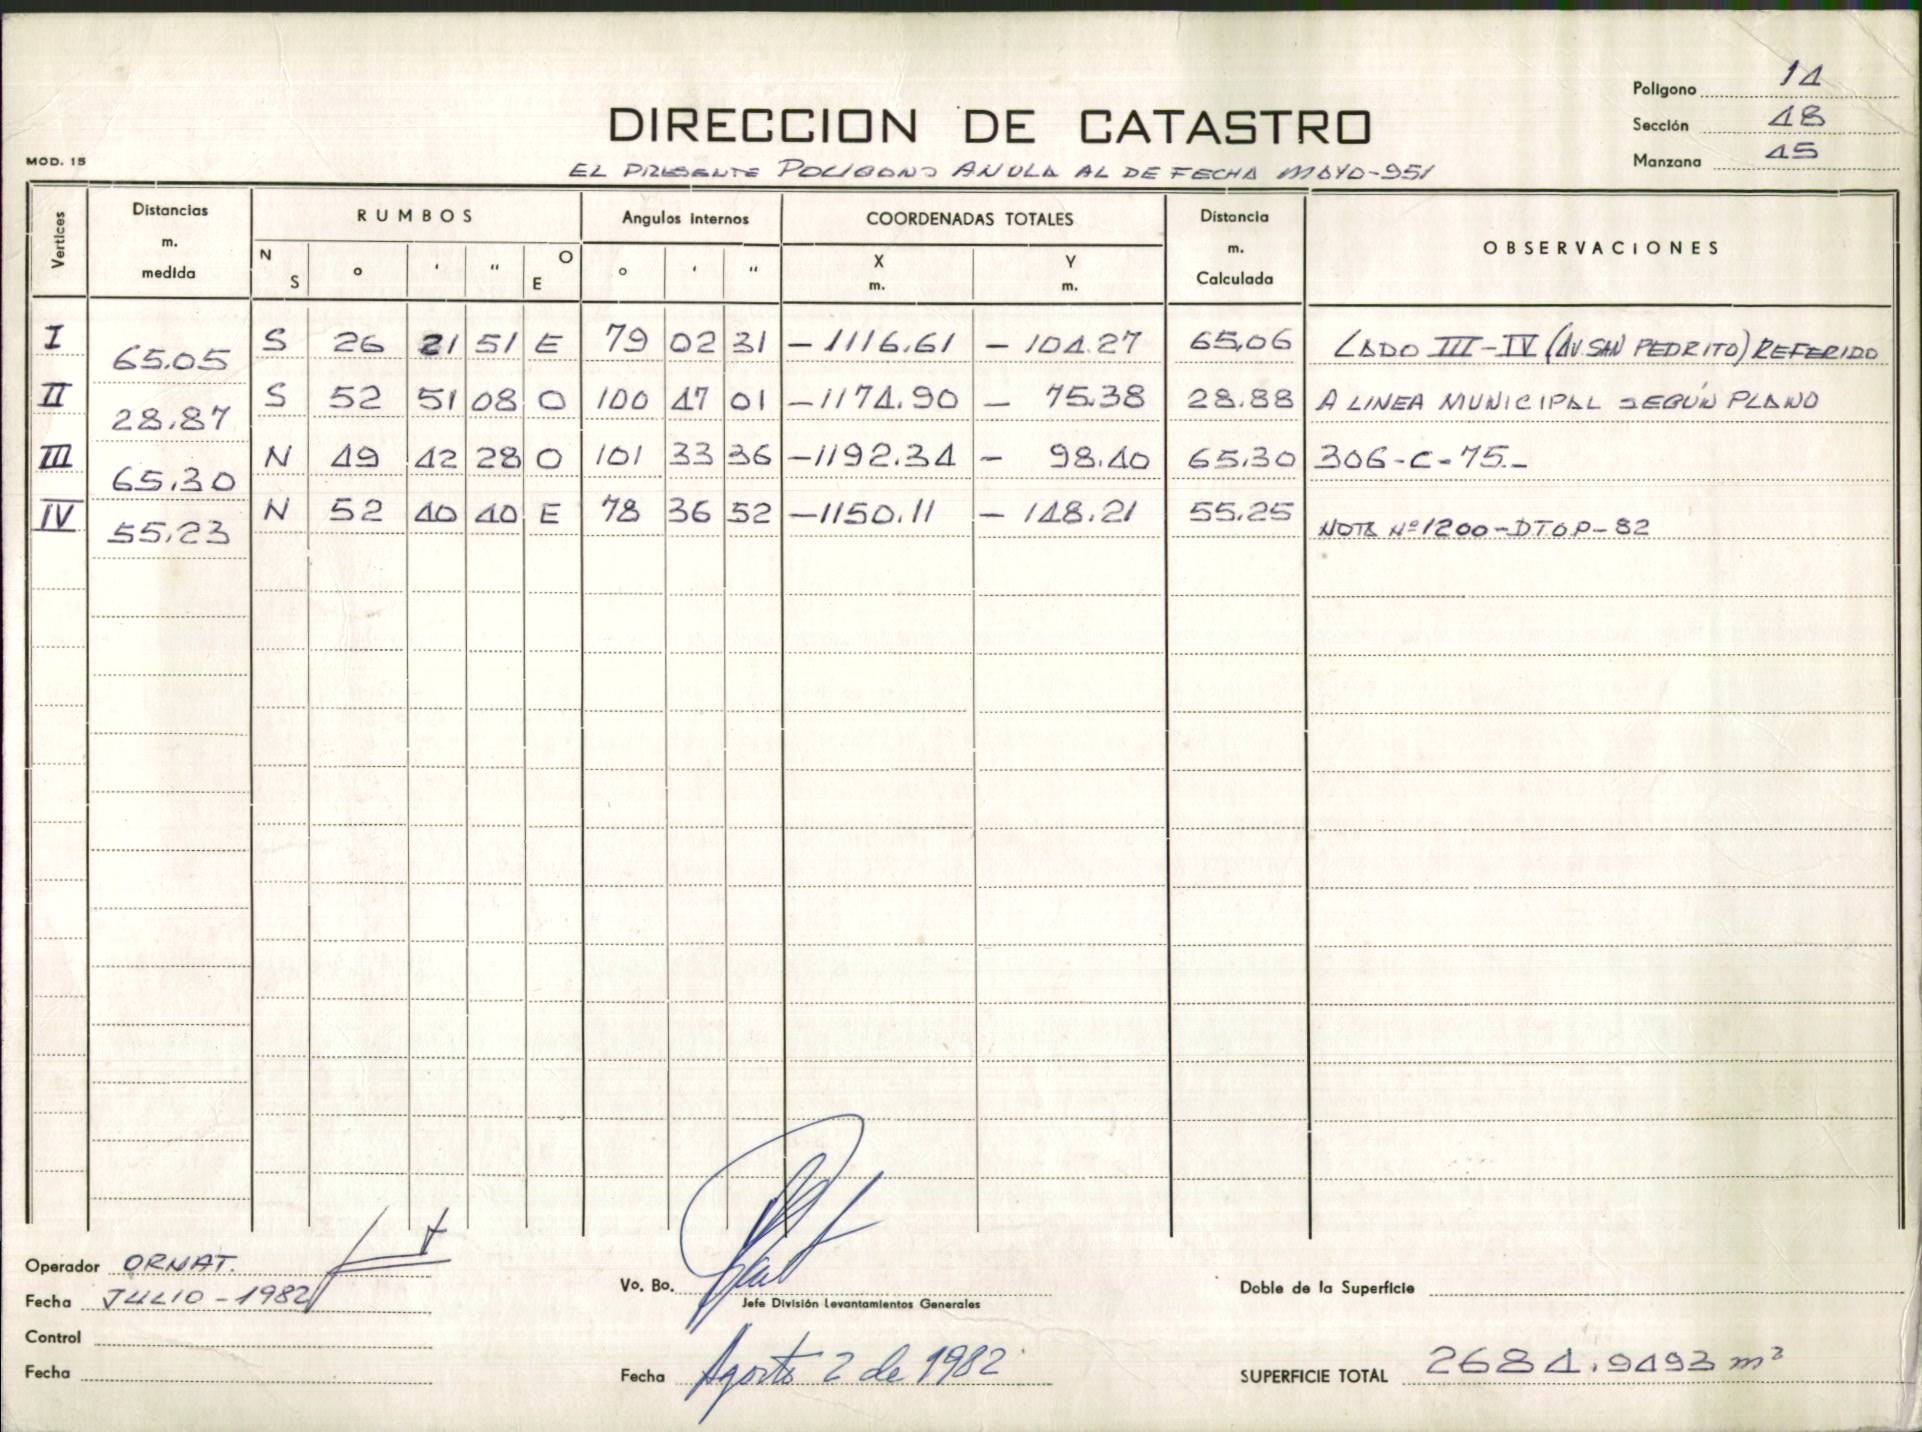 Polígono 14
DIRECCION DE CATASTRO
Sección 48
MOD. 15
Manzana 45
EL PRESENTE POLIGONO ANULA AL DE FECHA MAYO-951
Vertices Distancias m. medida RUMBOS Angulos internos COORDENADAS TOTALES Distancia m. Calculada OBSERVACIONES
N S ° ' " O E ° ' " X m. Y m.
I 65.05 S 26 21 51 E 79 02 31 -1116.61 - 104.27 65.06 LADO III-IV (AV. SAN PEDRITO) REFERIDO
II 28.87 S 52 51 08 O 100 47 01 -1174.90 - 75.38 28.88 A LINEA MUNICIPAL SEGÚN PLANO
III 65.30 N 49 42 28 O 101 33 36 -1192.34 - 98.40 65.30 306-C-75.-
IV 55.23 N 52 40 40 E 78 36 52 -1150.11 - 148.21 55.25 NOTA Nº 1200-D.T.O.P-82
Operador ORNAT.
Fecha JULIO - 1982
Vo. Bo.
Jefe División Levantamientos Generales
Doble de la Superficie
Control
Fecha
Fecha Agosto 2 de 1982
SUPERFICIE TOTAL 2684.9493 m²